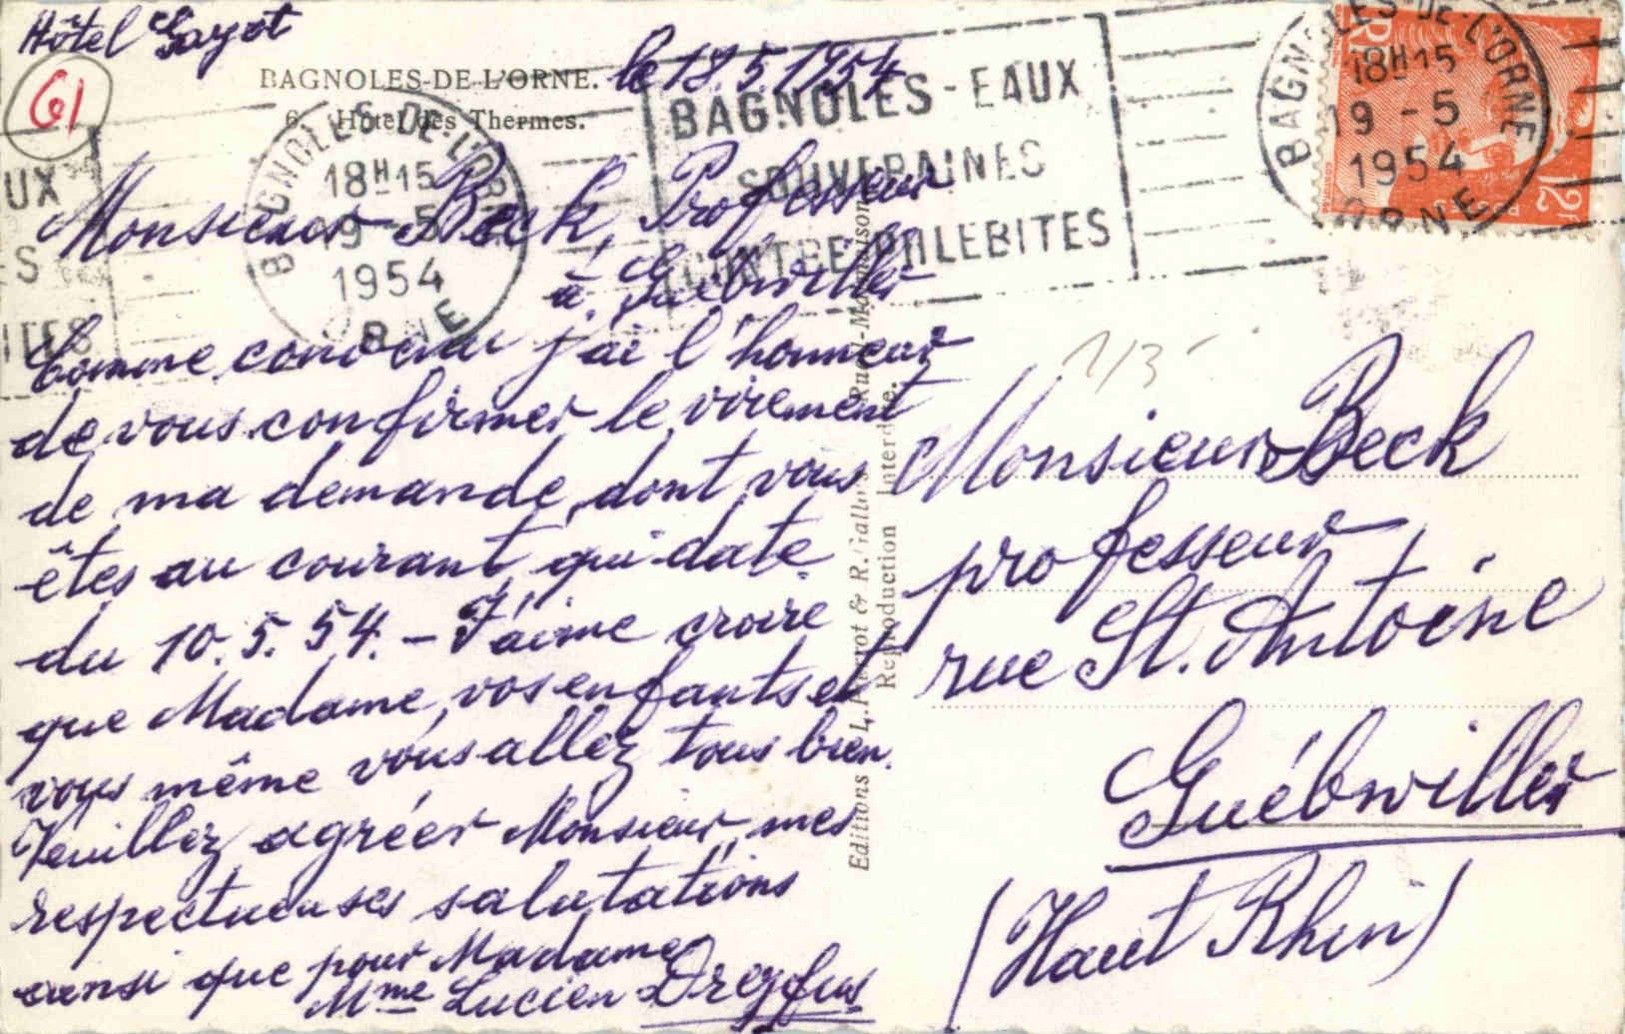 Hôtel Gayot
61
BAGNOLES-DE-L'ORNE. le 18.5.1954
6. Hôtel des Thermes.
BAGNOLES-DE-L'ORNE
18H15
19-5
1954
ORNE
BAGNOLES-EAUX
SOUVERAINES
CONTRE PHLEBITES
BAGNOLES-DE-L'ORNE
18H15
19-5
1954
ORNE
12F
POSTES
UX
ES
ITES
Monsieur Beck, Professeur
à Guebwiller
Comme convenu j'ai l'honneur
de vous confirmer le virement
de ma demande, dont vous
êtes au courant, qui date
du 10.5.54. - J'aime croire
que Madame, vos enfants et
vous même vous allez tous bien.
Veuillez agréer Monsieur, mes
respectueuses salutations
ainsi que pour Madame
Mme Lucien Dreyfus
Editions L. Pierrot & R. Gallois Rueil-Malmaison
Reproduction Interdite.
1/3-
Monsieur Beck
professeur
rue St. Antoine
Guébwiller
(Haut Rhin)